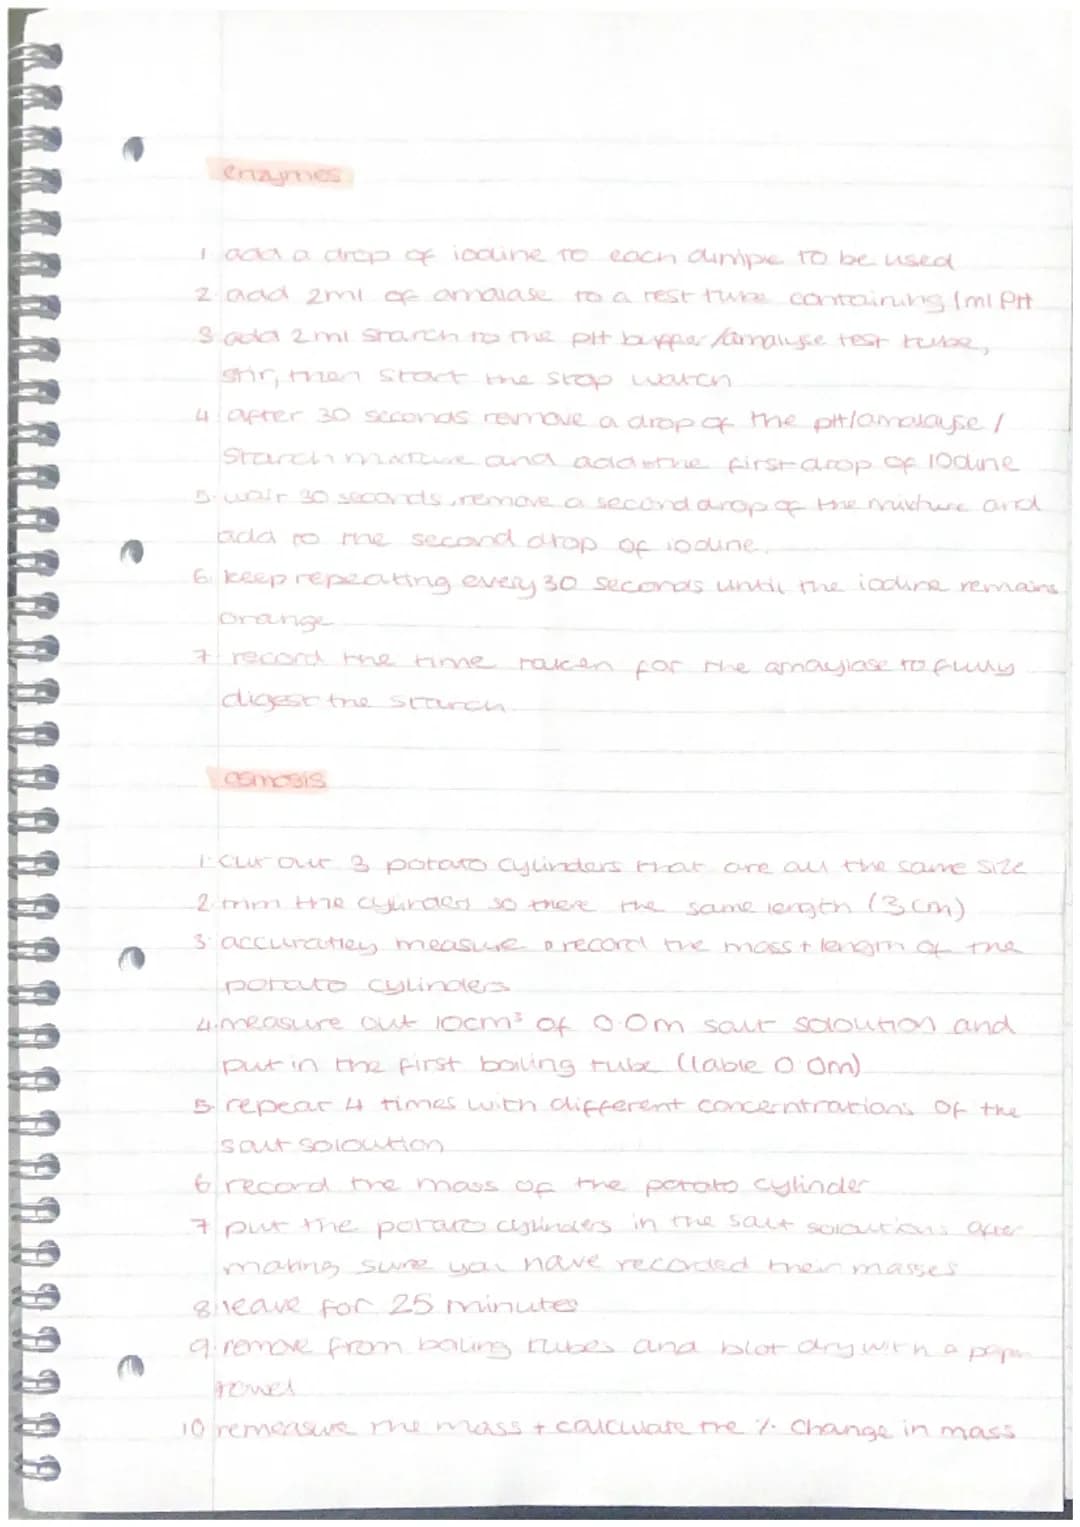 enzymes
1 add a drop of iodine to each dimple to be used
2 add 2ml of amalase to a test tube containing 1ml PH
3 add 2ml starch to the pH buffer/amalyse test tube,
stir, then start the stop watch
4 after 30 seconds remove a drop of the pH/amalayse /
starch mixture and add to the first drop of iodine
5. wait 30 seconds, remove a second drop of the mixture and
add to the second drop of iodine.
6. keep repeating every 30 seconds until the iodine remains
orange
7 record the time taken for the amaylase to fully
digest the starch.
osmosis
1. cut out 3 potato cylinders that are all the same size
2. trim the cylinders so there the same length (3cm)
3. accuratley measure + record the mass + length of the
potato cylinders
4. measure out 10cm³ of 0.0m salt soloution and
put in the first boiling tube (lable 0.0m)
5. repeat 4 times with different concerntrations of the
salt soloution
6 record the mass of the potato cylinder
7 put the potato cylinders in the salt soloutions after
making sure you have recorded their masses
8. leave for 25 minutes
9. remove from boiling tubes and blot dry with a paper
towel
10 remeasure the mass + calculate the % change in mass